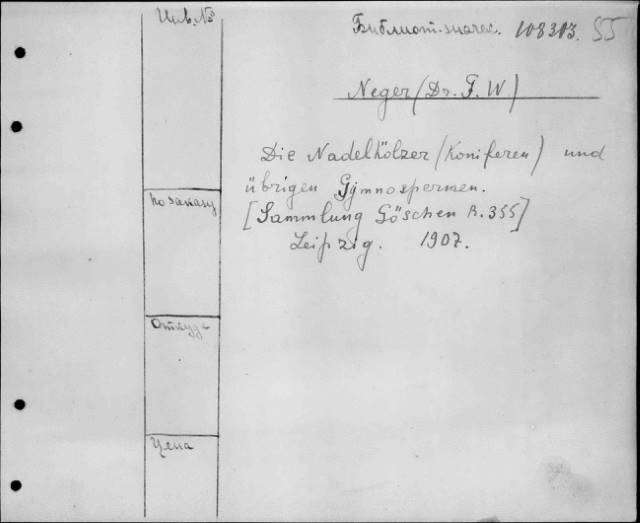 Инв. №
Библиот. знача. 108313. 55
Neger (Dr. F. W.)
Die Nadelhölzer (Koniferen) und
übrigen Gymnospermen.
[Sammlung Göschen B. 355]
Leipzig. 1907.
По заказу
Откуда
Цена